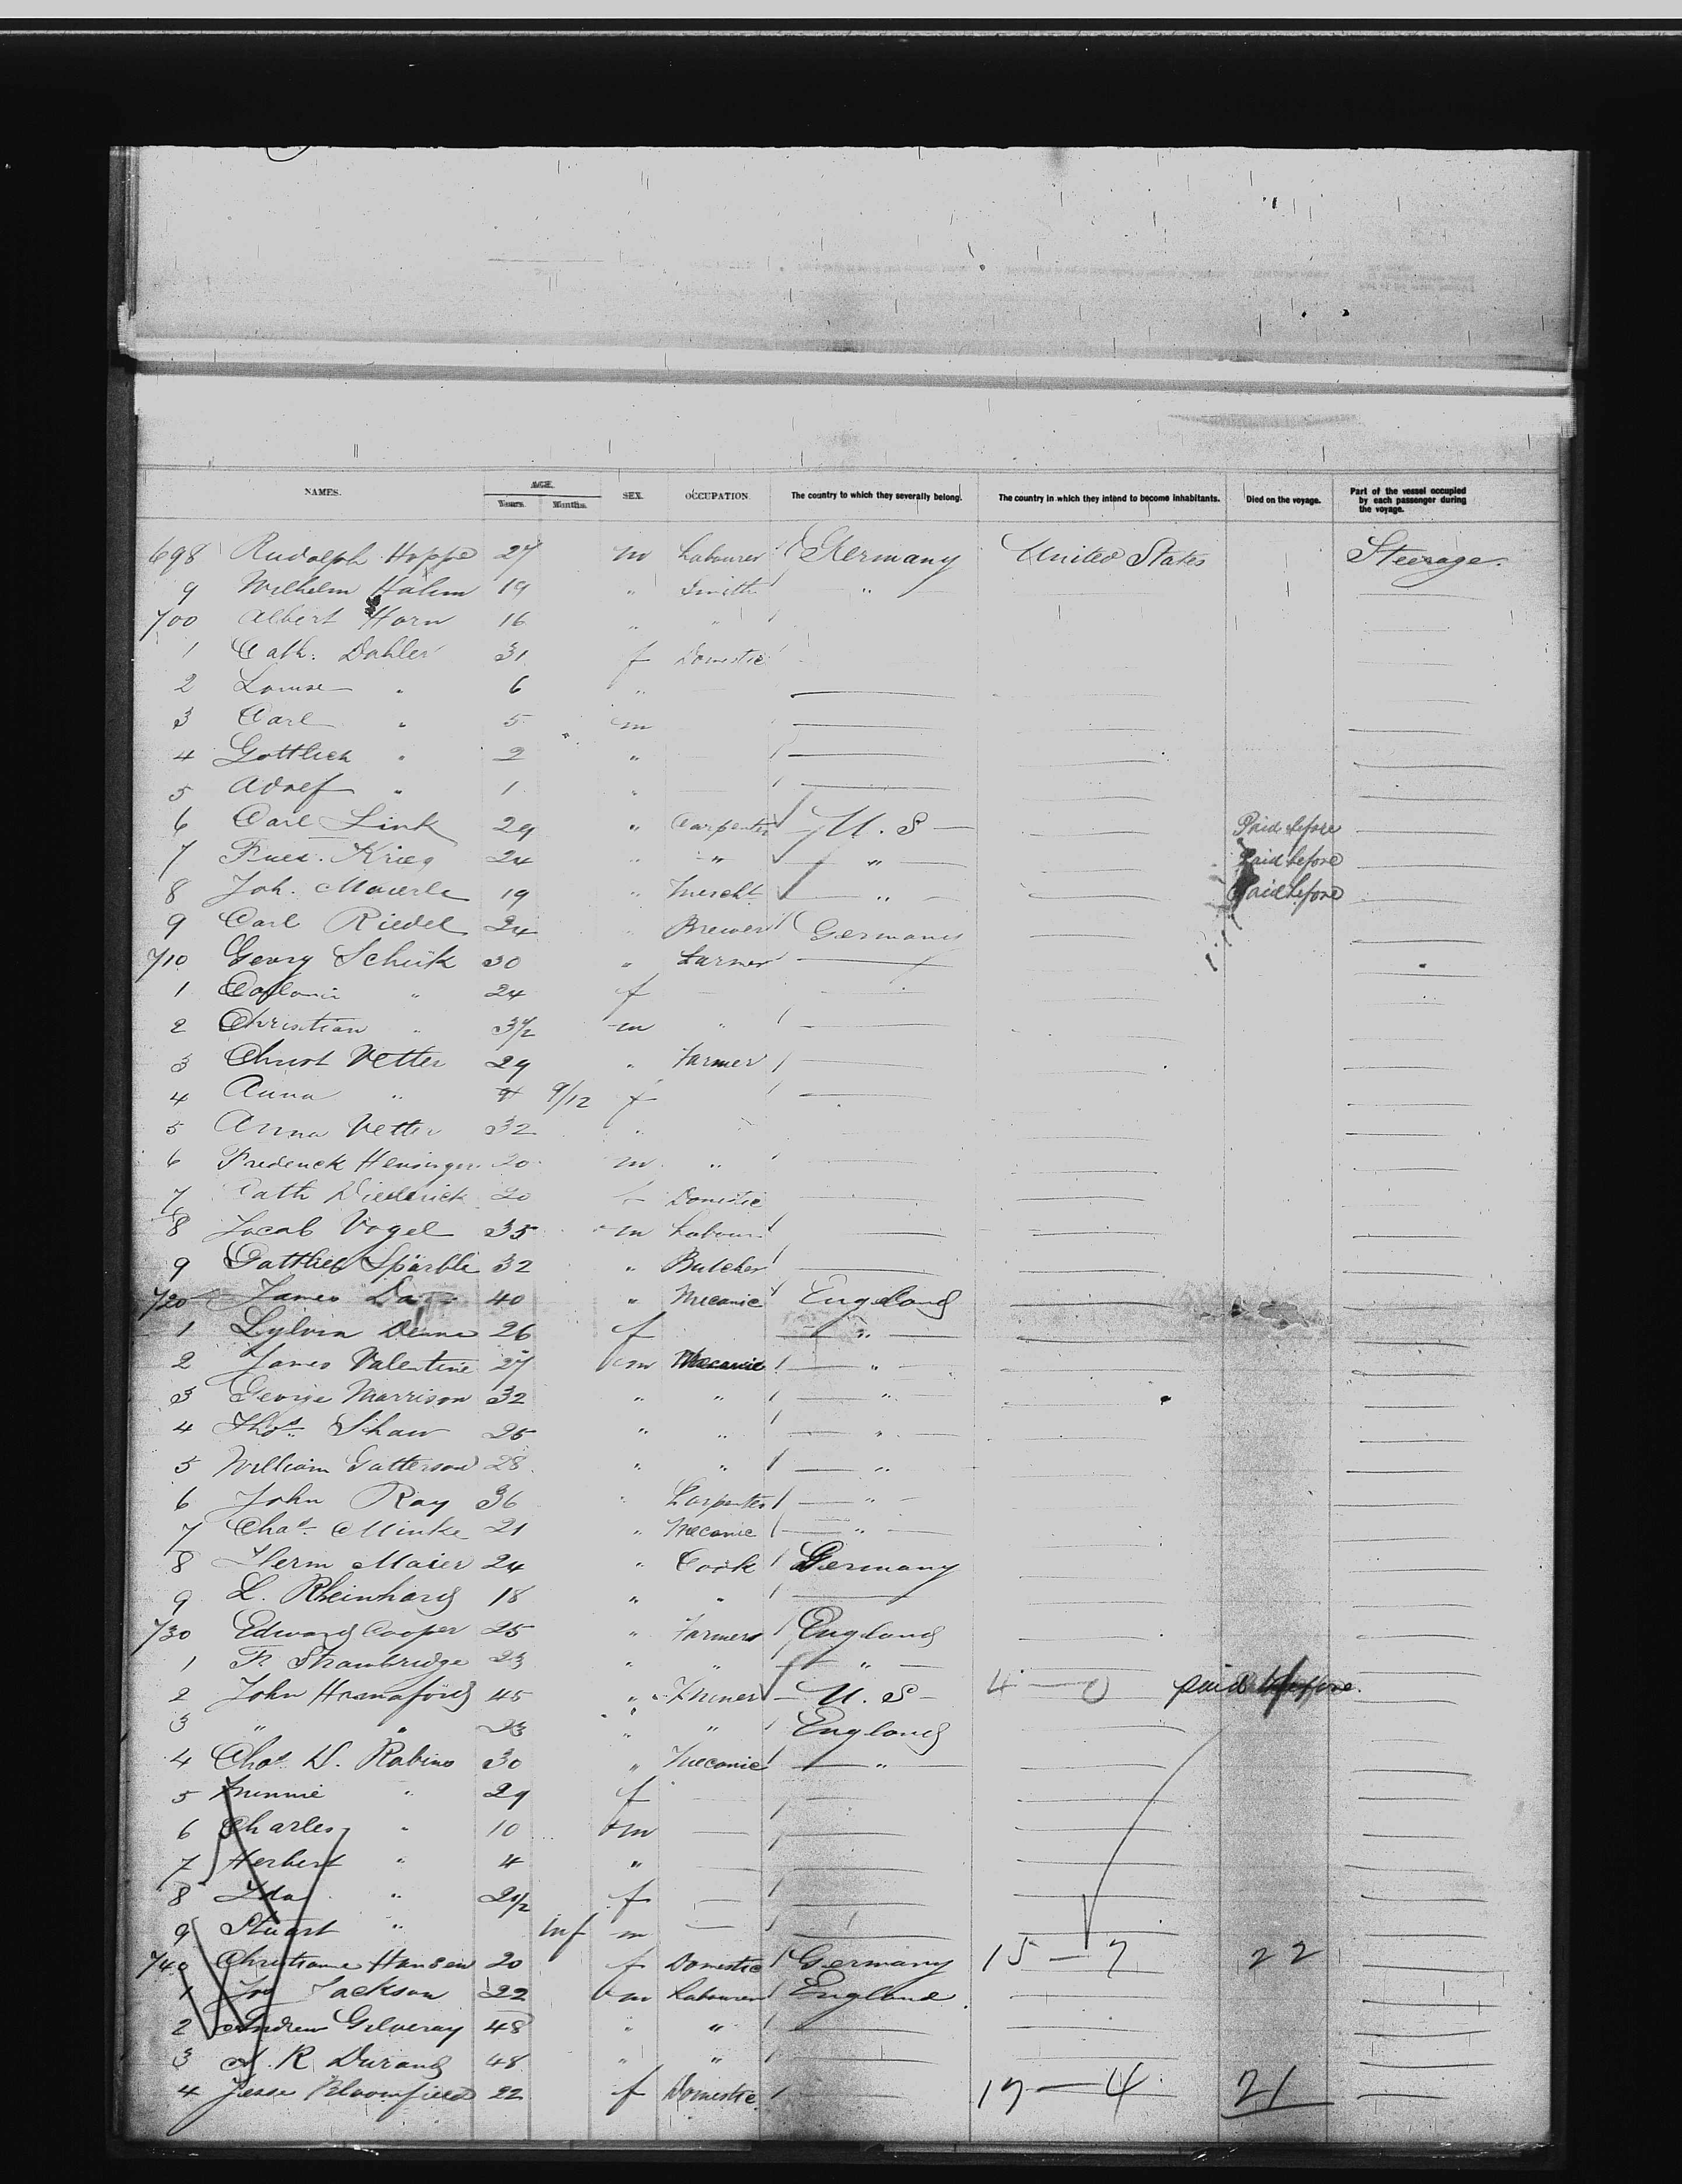 NAMES. AGE. SEX. OCCUPATION. The country to which they severally belong. The country in which they intend to become inhabitants. Died on the voyage. Part of the vessel occupied by each passenger during the voyage.
Years. Months.
698 Rudolph Hoppe 27 m Labourer Germany United States Steerage.
9 Wilhelm 19 " Smith "
700 Albert Horn 16 " "
1 Cath. Dahler 31 f Domestic
2 Louise " 6 "
3 Carl " 5 m
4 Gottlieb " 2 "
5 Adolf " 1 "
6 Carl Link 29 " Carpenter U.S Paid before
7 Krieg 24 " " " Paid before
8 Joh. Maierle 19 " " Paid before
9 Carl Riedel 24 " Brewer Germany
710 Georg Schük 30 " Farmer
1 " 24 f
2 Christian " 3 1/2 m "
3 Christ Vetter 29 " Farmer
4 Anna " 9/12 f
5 Anna Vetter 32 "
6 Frederick 20 m "
7 Cath Diederick 20 f Domestic
8 Jacob Vogel 35 m Labourer
9 Gottlieb Spärble 32 " Butcher
720 James 40 " Mecanic England
1 Sylvia 26 f "
2 James Valentine 27 m Mecanic "
3 George Marrison 32 " " "
4 Thos. Shaw 25 " " "
5 William 28 " " "
6 John Ray 36 " Carpenter "
7 Chas. Minke 21 " Mecanic "
8 Herm Maier 24 " Cook Germany
9 L. Rheinhard 18 " "
730 Edward Cooper 25 " Farmer England
1 F. Strawbridge 23 " " "
2 John Hannaford 45 " Miner U.S 4 — 0 paid before.
3 " " 23 " " England
4 Chas. D. Robins 30 " Mecanic "
5 Minnie " 29 f
6 Charles " 10 m
7 Herbert " 4 "
8 Ida " 2 1/2 f
9 Stuart " inf m
740 Christiane Hansen 20 f Domestic Germany 15 — 7 22
1 Jackson 22 m Labourer England
2 Andrew Gilveray 48 " "
3 R Durand 48 " "
4 Jesse Bloomfield 22 f Domestic 17 — 4 21